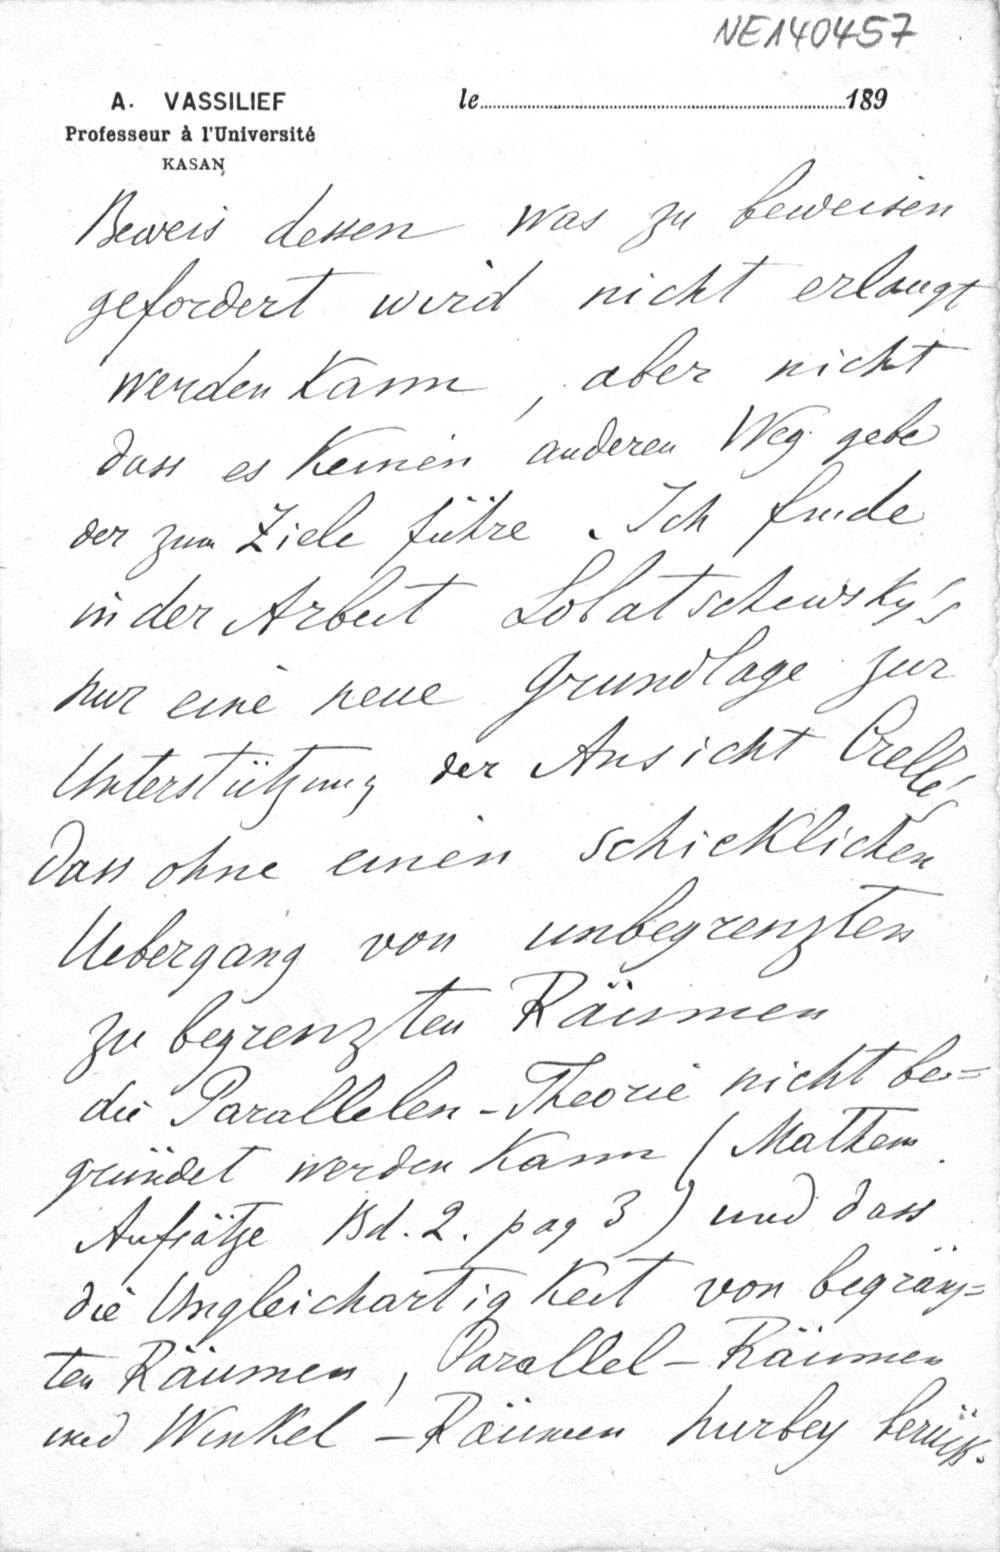 NE140457
A. VASSILIEF
Professeur à l'Université
KASAN
le 189
Beweis dessen was zu beweisen
gefordert wird nicht erlangt
werden kann, aber nicht
dass es keinen anderen Weg gebe
der zum Ziele führe. Ich finde
in der Arbeit Lobatschewsky's
nur eine neue Grundlage zur
Unterstützung der Ansicht Crelle's
dass ohne einen schicklichen
Uebergang von unbegrenzten
zu begrenzten Räumen
die Parallelen-Theorie nicht be=
gründet werden kann (Mathem.
Aufsätze Bd. 2. pag 3) und dass
die Ungleichartigkeit von begränz=
ten Räumen, Parallel-Räumen
und Winkel-Räumen hierbey berück-